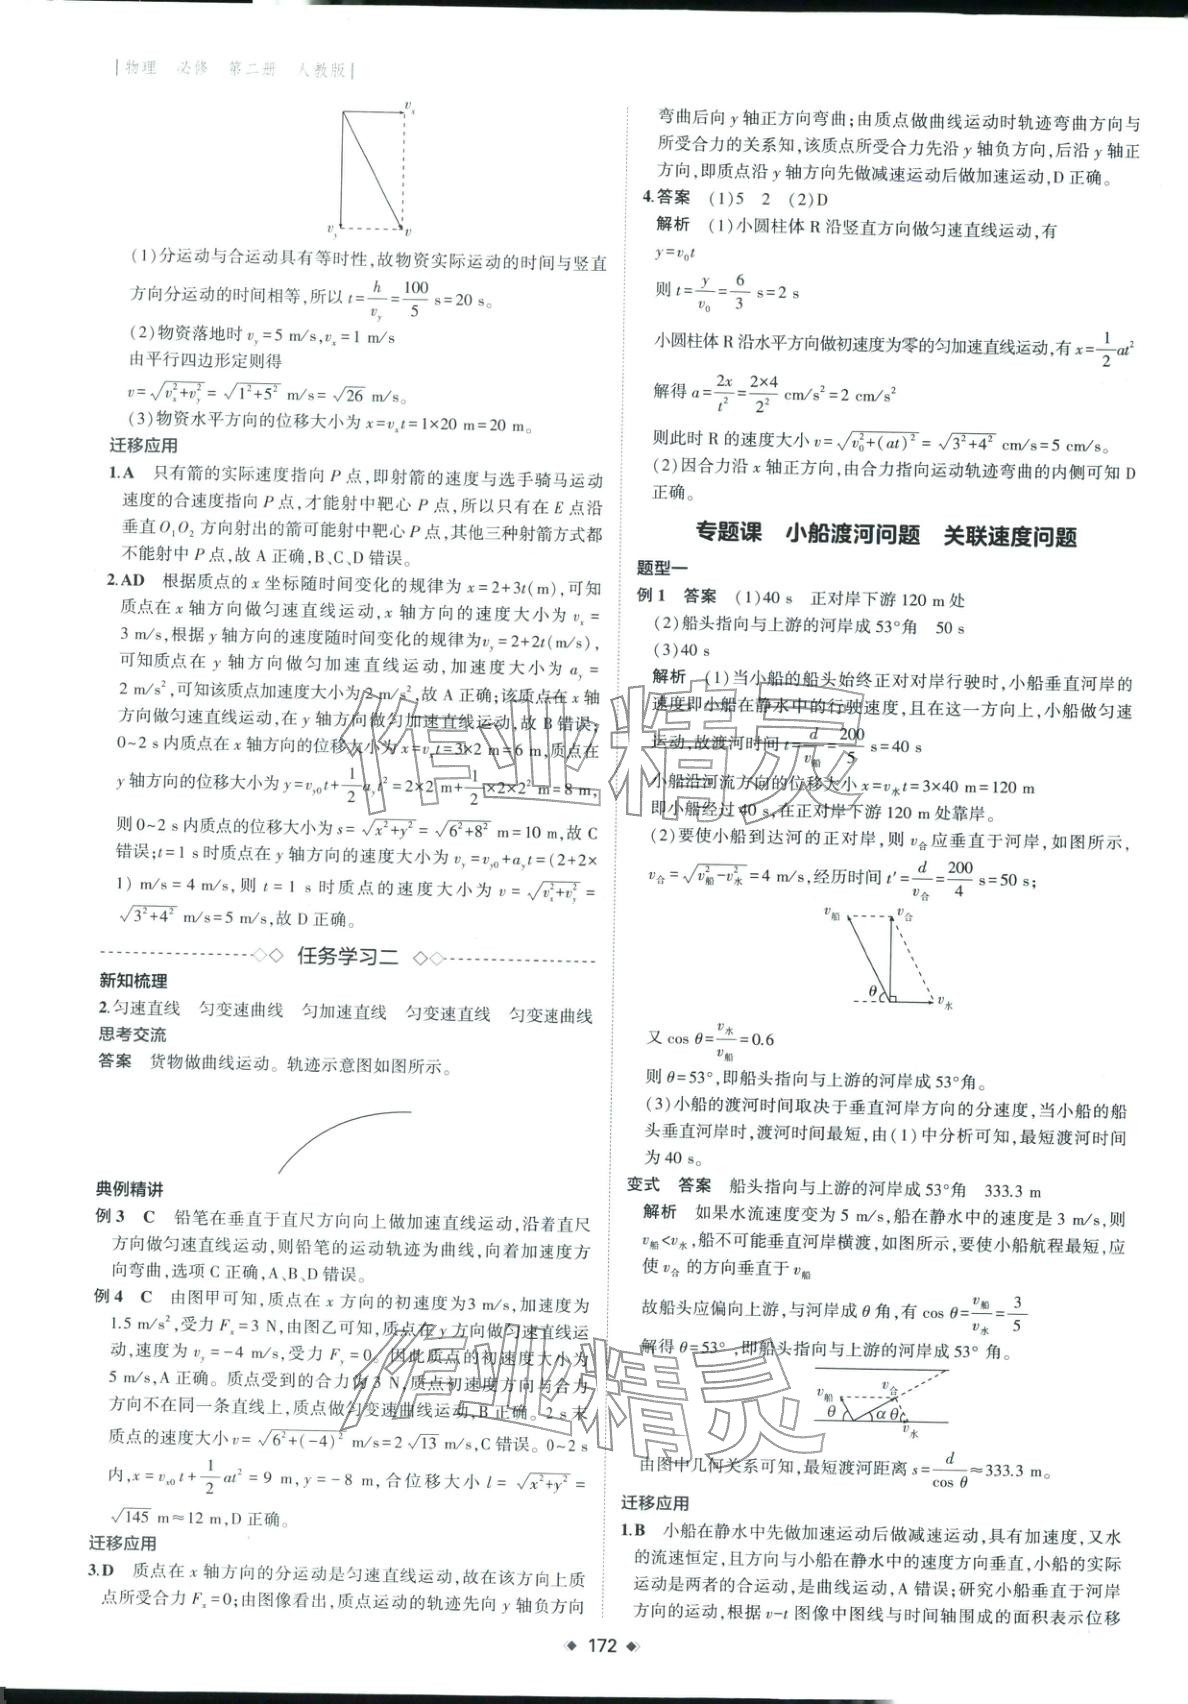 物理 必修 第二册 人教版
vₓ
v_y v
(1)分运动与合运动具有等时性,故物资实际运动的时间与竖直
方向分运动的时间相等,所以 t=h/v_y=100/5 s=20 s。
(2)物资落地时 v_y=5 m/s,vₓ=1 m/s
由平行四边形定则得
v=√(vₓ²+v_y²)=√(1²+5²) m/s=√26 m/s。
(3)物资水平方向的位移大小为 x=vₓt=1×20 m=20 m。
迁移应用
1.A 只有箭的实际速度指向 P 点,即射箭的速度与选手骑马运动
速度的合速度指向 P 点,才能射中靶心 P 点,所以只有在 E 点沿
垂直O₁O₂ 方向射出的箭可能射中靶心 P 点,其他三种射箭方式都
不能射中 P 点,故 A 正确,B、C、D 错误。
2.AD 根据质点的 x 坐标随时间变化的规律为 x=2+3t(m),可知
质点在 x 轴方向做匀速直线运动,x 轴方向的速度大小为 vₓ=
3 m/s,根据 y 轴方向的速度随时间变化的规律为v_y=2+2t(m/s),
可知质点在 y 轴方向做匀加速直线运动,加速度大小为 a_y=
2 m/s²,可知该质点加速度大小为 2 m/s²,故 A 正确;该质点在 x 轴
方向做匀速直线运动,在 y 轴方向做匀加速直线运动,故 B 错误;
0~2 s 内质点在 x 轴方向的位移大小为 x=vₓt=3×2 m=6 m,质点在
y 轴方向的位移大小为 y=v_y0t+1/2 a_yt²=2×2 m+1/2×2×2² m=8 m,
则 0~2 s 内质点的位移大小为 s=√(x²+y²)=√(6²+8²) m=10 m,故 C
错误;t=1 s 时质点在 y 轴方向的速度大小为 v_y=v_y0+a_yt=(2+2×
1) m/s=4 m/s,则 t=1 s 时质点的速度大小为 v=√(vₓ²+v_y²)=
√(3²+4²) m/s=5 m/s,故 D 正确。
任务学习二
新知梳理
2.匀速直线 匀变速曲线 匀加速直线 匀变速直线 匀变速曲线
思考交流
答案 货物做曲线运动。轨迹示意图如图所示。
典例精讲
例 3 C 铅笔在垂直于直尺方向向上做加速直线运动,沿着直尺
方向做匀速直线运动,则铅笔的运动轨迹为曲线,向着加速度方
向弯曲,选项 C 正确,A、B、D 错误。
例 4 C 由图甲可知,质点在 x 方向的初速度为3 m/s,加速度为
1.5 m/s²,受力 Fₓ=3 N,由图乙可知,质点在 y 方向做匀速直线运
动,速度为 v_y=-4 m/s,受力 F_y=0。因此质点的初速度大小为
5 m/s,A 正确。质点受到的合力为 3 N,质点初速度方向与合力
方向不在同一条直线上,质点做匀变速曲线运动,B 正确。2 s 末
质点的速度大小 v=√(6²+(-4)²) m/s=2√13 m/s,C 错误。0~2 s
内,x=vₓ₀t+1/2 at²=9 m,y=-8 m,合位移大小 l=√(x²+y²)=
√145 m≈12 m,D 正确。
迁移应用
3.D 质点在 x 轴方向的分运动是匀速直线运动,故在该方向上质
点所受合力 Fₓ=0;由图像看出,质点运动的轨迹先向 y 轴负方向
弯曲后向 y 轴正方向弯曲;由质点做曲线运动时轨迹弯曲方向与
所受合力的关系知,该质点所受合力先沿 y 轴负方向,后沿 y 轴正
方向,即质点沿 y 轴方向先做减速运动后做加速运动,D 正确。
4.答案 (1)5 2 (2)D
解析 (1)小圆柱体 R 沿竖直方向做匀速直线运动,有
y=v₀t
则 t=y/v₀=6/3 s=2 s
小圆柱体 R 沿水平方向做初速度为零的匀加速直线运动,有 x=1/2 at²
解得 a=2x/t²=2×4/2² cm/s²=2 cm/s²
则此时 R 的速度大小 v=√(v₀²+(at)²)=√(3²+4²) cm/s=5 cm/s。
(2)因合力沿 x 轴正方向,由合力指向运动轨迹弯曲的内侧可知 D
正确。
专题课 小船渡河问题 关联速度问题
题型一
例 1 答案 (1)40 s 正对岸下游 120 m 处
(2)船头指向与上游的河岸成 53°角 50 s
(3)40 s
解析 (1)当小船的船头始终正对对岸行驶时,小船垂直河岸的
速度即小船在静水中的行驶速度,且在这一方向上,小船做匀速
运动,故渡河时间 t=d/v船=200/5 s=40 s
小船沿河流方向的位移大小 x=v水t=3×40 m=120 m
即小船经过 40 s,在正对岸下游 120 m 处靠岸。
(2)要使小船到达河的正对岸,则 v合 应垂直于河岸,如图所示,
v合=√(v船²-v水²)=4 m/s,经历时间 t′=d/v合=200/4 s=50 s;
v船 v合
θ v水
又 cos θ=v水/v船=0.6
则 θ=53°,即船头指向与上游的河岸成 53°角。
(3)小船的渡河时间取决于垂直河岸方向的分速度,当小船的船
头垂直河岸时,渡河时间最短,由(1)中分析可知,最短渡河时间
为 40 s。
变式 答案 船头指向与上游的河岸成 53°角 333.3 m
解析 如果水流速度变为 5 m/s,船在静水中的速度是 3 m/s,则
v船<v水,船不可能垂直河岸横渡,如图所示,要使小船航程最短,应
使 v合 的方向垂直于 v船
故船头应偏向上游,与河岸成 θ 角,有 cos θ=v船/v水=3/5
解得 θ=53°,即船头指向与上游的河岸成 53° 角。
v船 v合
θ α θ
v水
由图中几何关系可知,最短渡河距离 s=d/cos θ≈333.3 m。
迁移应用
1.B 小船在静水中先做加速运动后做减速运动,具有加速度,又水
的流速恒定,且方向与小船在静水中的速度方向垂直,小船的实际
运动是两者的合运动,是曲线运动,A 错误;研究小船垂直于河岸
方向的运动,根据 v-t 图像中图线与时间轴围成的面积表示位移
172
作业精灵
作业精灵